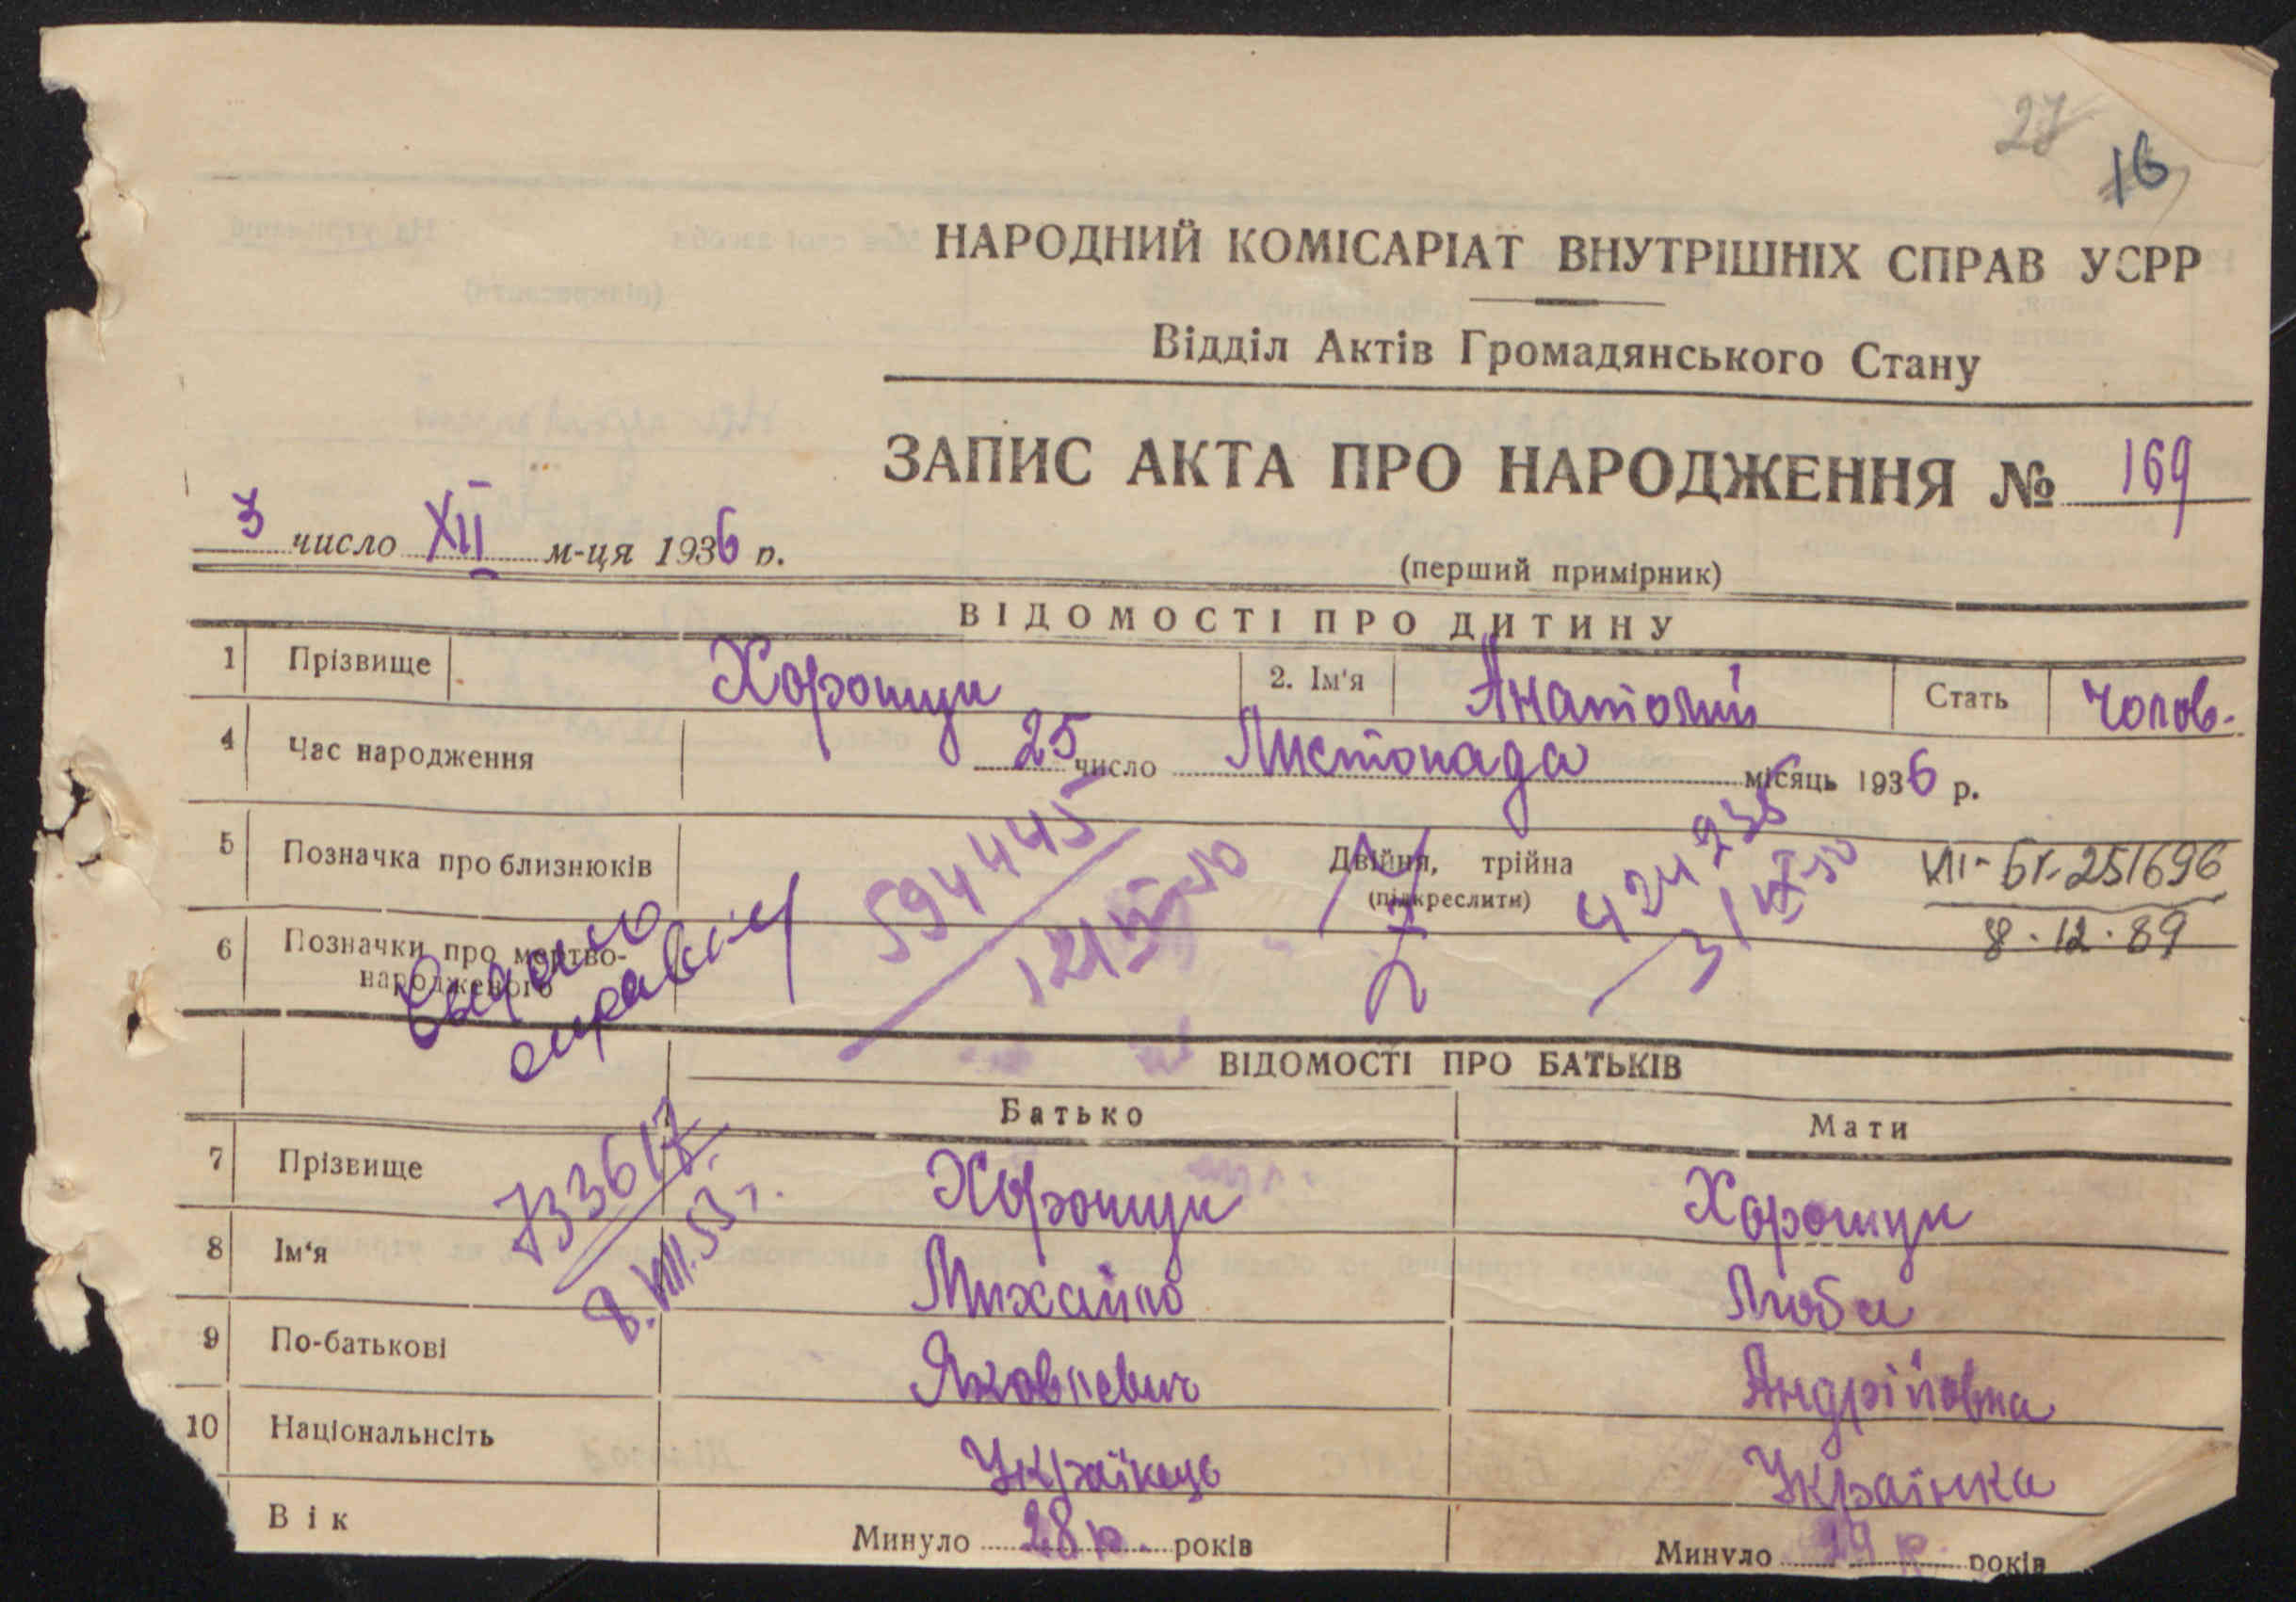 27
16
НАРОДНИЙ КОМІСАРІАТ ВНУТРІШНІХ СПРАВ УСРР
Відділ Актів Громадянського Стану
ЗАПИС АКТА ПРО НАРОДЖЕННЯ № 169
3 число XII м-ця 1936 р.
(перший примірник)
ВІДОМОСТІ ПРО ДИТИНУ
1 Прізвище Хорощук 2. Ім'я Анатолій Стать Чолов.
4 Час народження 25 число Листопада місяць 1936 р.
5 Позначка про близнюків Двійня, трійна
(підкреслити)
594445
424235
VII-БК-251696
8.12.89
6 Позначки про мертво-
народженого
ВІДОМОСТІ ПРО БАТЬКІВ
Батько Мати
7 Прізвище Хорощук Хорощук
733617
8.VIII.53 г.
8 Ім'я Михайло Люба
9 По-батькові Яковлевич Андріївна
10 Національнсіть Українець Українка
Вік Минуло 28 р. років Минуло 29 р. років